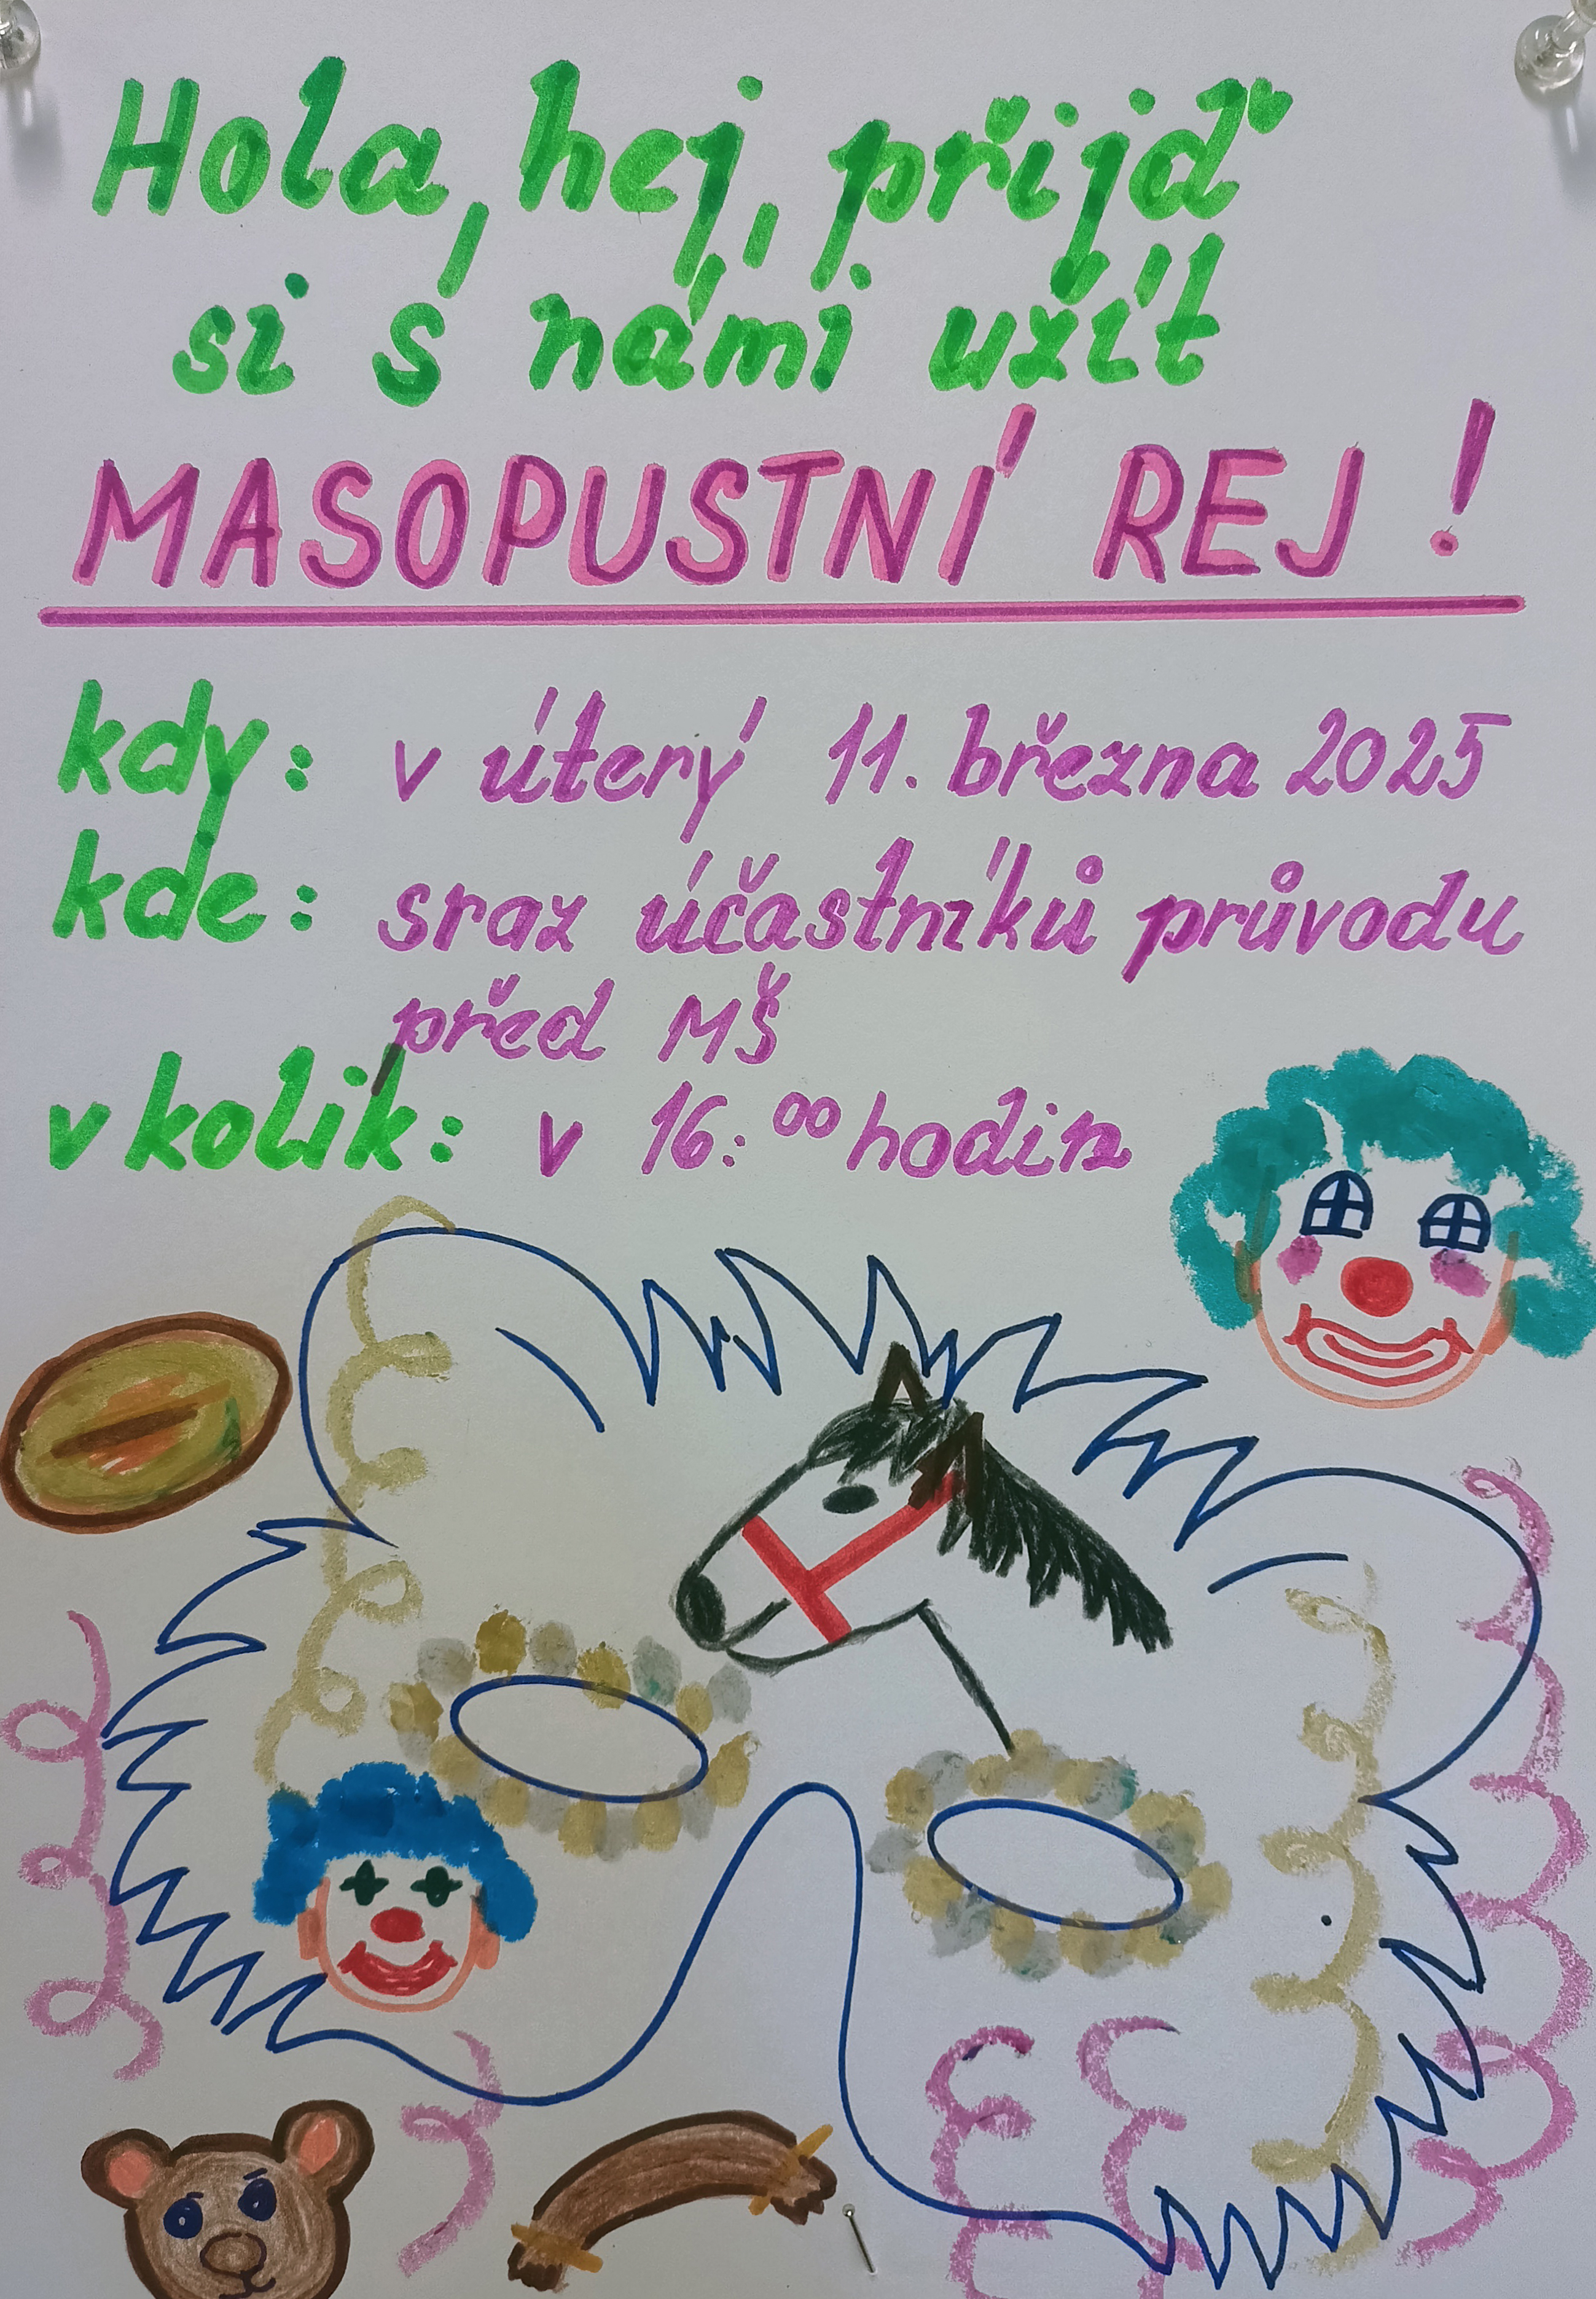 Hola, hej, přijď
si s námi užít
MASOPUSTNÍ REJ!
kdy: v úterý 11. března 2025
kde: sraz účastníků průvodu
před MŠ
v kolik: v 16:00 hodin